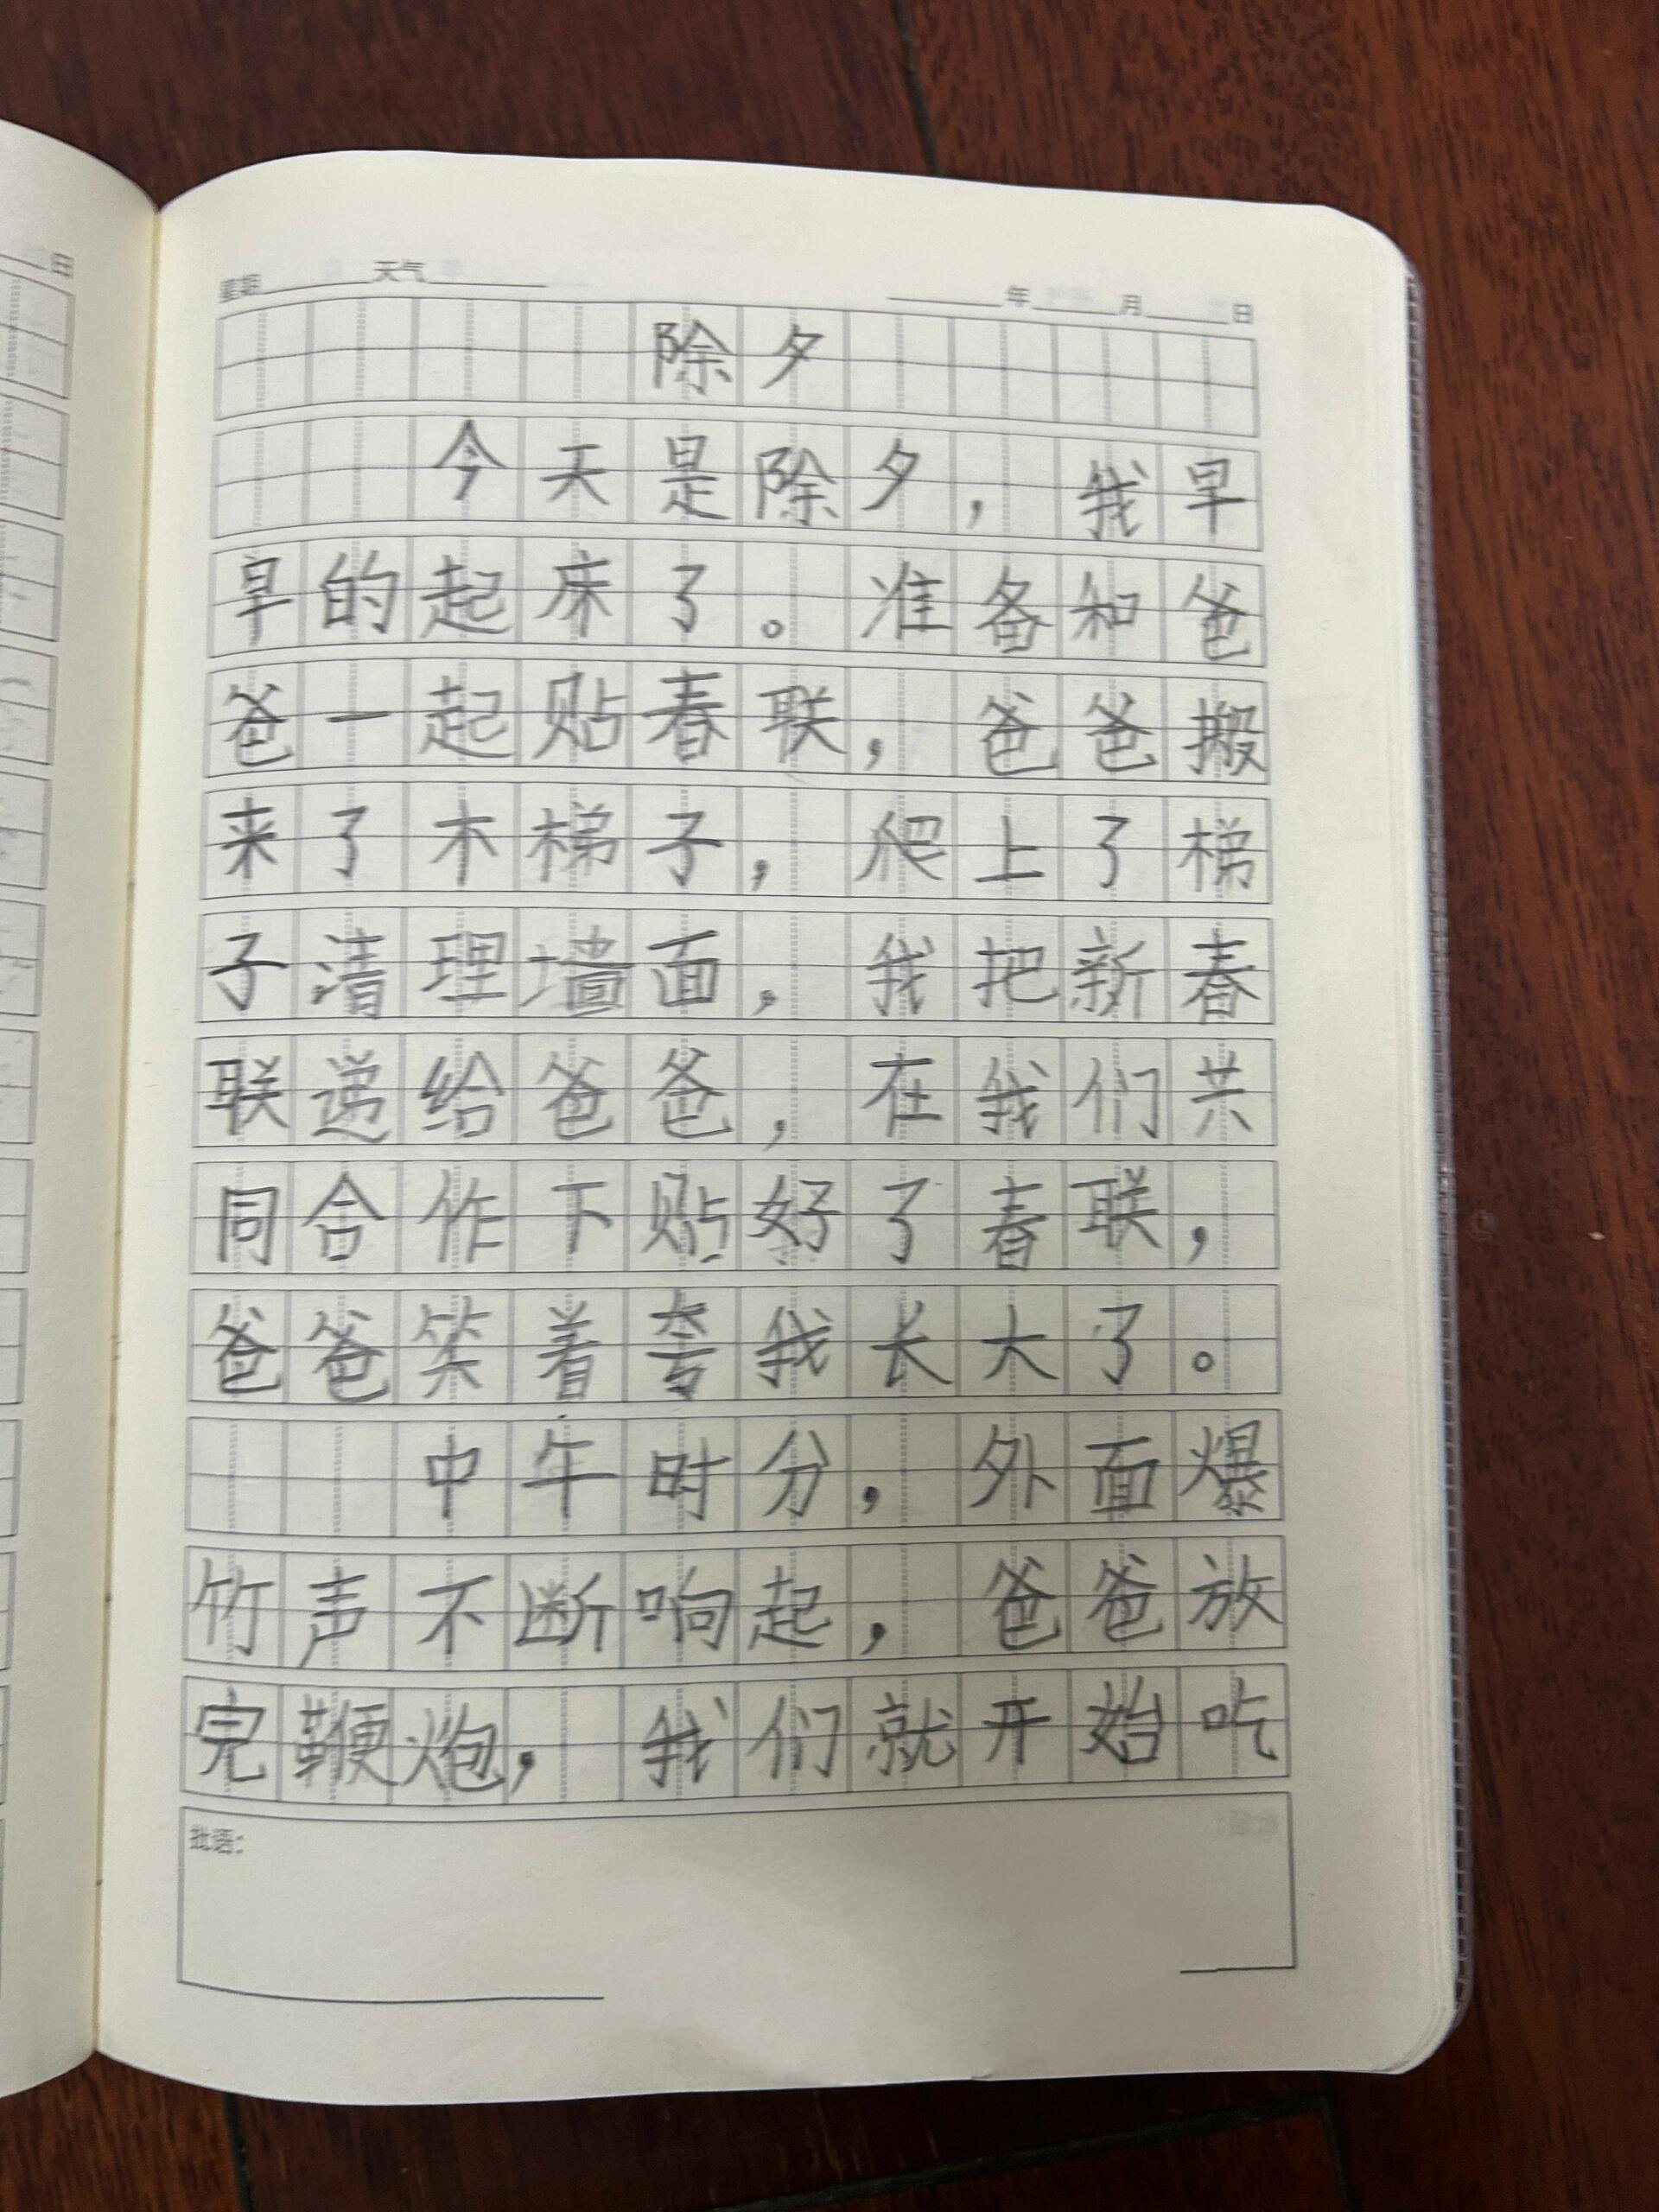 日
星期 天气 年 月 日
除夕
今天是除夕，我早
早的起床了。准备和爸
爸一起贴春联，爸爸搬
来了木梯子，爬上了梯
子清理墙面，我把新春
联递给爸爸，在我们共
同合作下贴好了春联，
爸爸笑着夸我长大了。
中午时分，外面爆
竹声不断响起，爸爸放
完鞭炮，我们就开始吃
批语：